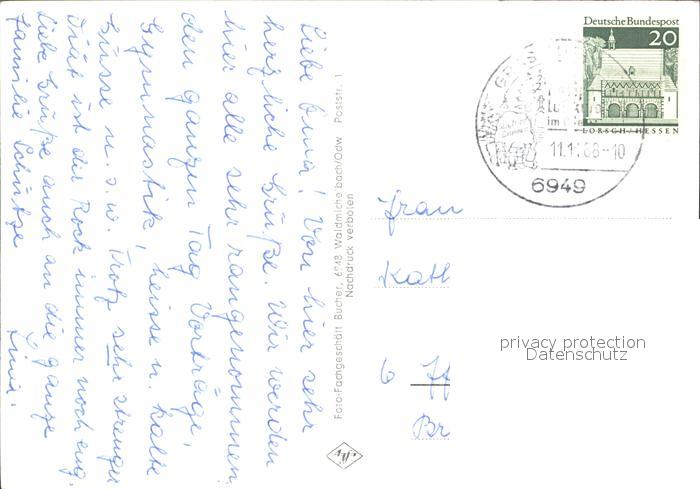 Liebe Erna! Von hier sehr
herzliche Grüße. Wir werden
hier alle sehr rangenommen
den ganzen Tag Vorträge,
Gymnastik, heisse u. kalte
Güsse u.s.w. Trotz sehr strenger
Diät ist der Rock immer noch eng.
Liebe Grüße auch an die ganze
Familie Schütze
Foto-Fachgeschäft Bucher, 6948 Waldmichelbach/Odw. Poststr. 1
Nachdruck verboten
Deutsche Bundespost
20
LORSCH/HESSEN
im
6949
Frau
Kath
6
Br
privacy protection
Datenschutz